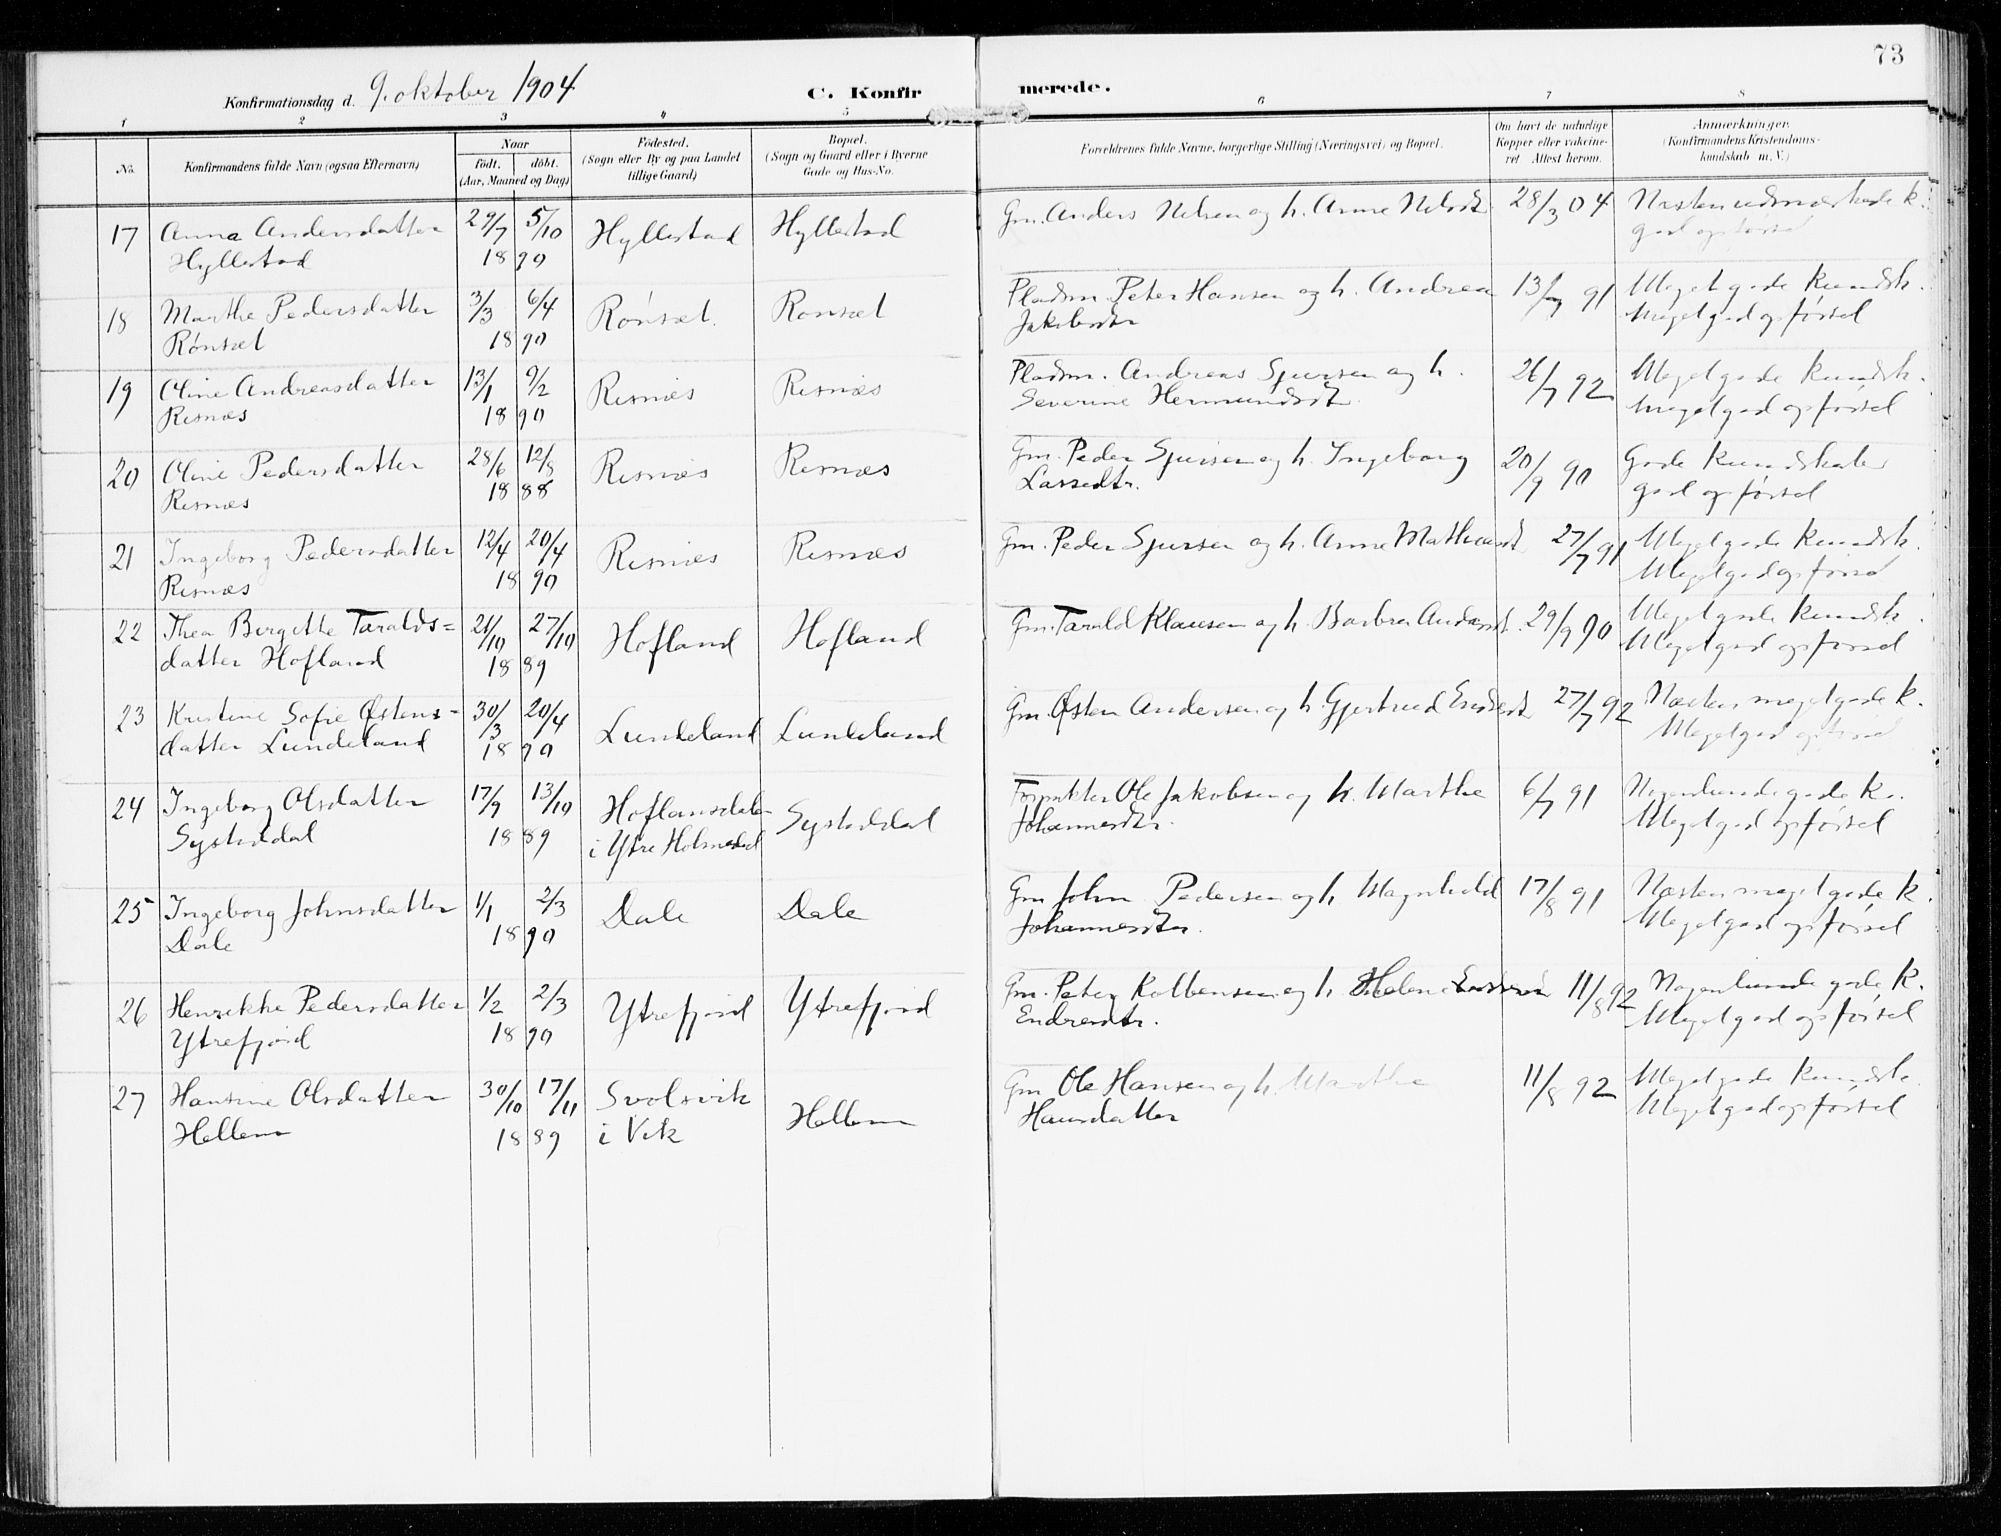 73
Konfirmationsdag d. 9. oktober 1904
C. Konfirmerede.
1 2 3 4 5 6 7 8
No.
Konfirmandens fulde Navn (ogsaa Efternavn)
Naar
født. døbt.
(Aar, Maaned og Dag)
Fødested.
(Sogn eller By og paa Landet
tillige Gaard)
Bopæl.
(Sogn og Gaard eller i Byerne
Gade og Hus-No.
Forældrenes fulde Navne, borgerlige Stilling (Næringsvei) og Bopæl.
Om havt de naturlige
Kopper eller vakcine-
ret. Attest herom.
Anmærkninger.
(Konfirmandens Kristendoms-
kundskab m. V.)
17 Anna Andersdatter 29/7 5/10 Hyllestad Hyllestad Gm. Anders Nilsen og h. Anne Nilsdt 28/3 04 Næsten udmærkede k.
Hyllestad 18 90 god opførsel
18 Marthe Pedersdatter 3/3 6/4 Rønset. Rønset Pladsm. Peter Hansen og h. Andrea 13/7 91 Meget gode kundsk.
Rønset 18 90 Jakobsdtr Meget god opførsel
19 Oline Andreasdatter 13/1 9/2 Risnæs Risnæs Pladsm. Andreas Sjursen og h. 26/7 92 Meget gode kundsk.
Risnæs 18 90 Severine Hermundsdt. Meget god opførsel
20 Oline Pedersdatter 28/6 12/8 Risnæs Risnæs Gm. Peder Sjursen og h. Ingeborg 20/9 90 Gode kundskaber
Risnæs 18 88 Lassedtr. god opførsel
21 Ingeborg Pedersdatter 12/4 20/4 Risnæs Risnæs Gm. Peder Sjursen og h. Anne 27/7 91 Meget gode kundsk.
Risnæs 18 90 Meget god opførsel
22 Thea Birgitte Taralds= 21/10 27/10 Hofland Hofland Gm. Tarald Klausen og h. Barbra Andersdt. 29/9 90 Meget gode kundsk.
datter Hofland 18 89 Meget god opførsel
23 Kristine Sofie Østens= 30/3 20/4 Lundeland Lundeland Gm. Østen Andersen og h Gjertrud 27/7 92 Næsten meget gode k.
datter Lundeland 18 90 Meget god opførsel
24 Ingeborg Olsdatter 17/9 13/10 Hoflandsdalen Systaddal Forpakter Ole Jakobsen og h. Marthe 6/7 91 Nogenlunde gode k.
Systaddal 18 89 i Ytre Holmedal Johannesdtr. Meget god opførsel
25 Ingeborg Johnsdatter 1/1 2/3 Dale Dale Gm John Pedersen og h Magnhild 17/8 91 Næsten meget gode k.
Dale 18 90 Johannesdtr. Meget god opførsel
26 Henrikke Pedersdatter 1/2 2/3 Ytrefjord Ytrefjord Gm. Peter Kolbensen og h. Helene 11/8 92 Nogenlunde gode k.
Ytrefjord 18 90 Endresdtr. Meget god opførsel
27 Hansine Olsdatter 30/10 17/11 Svolsvik Hellem Gm Ole Hansen og h. Marthe 11/8 92 Meget gode kundsk.
Hellem 18 89 i Vik Hansdatter Meget god opførsel